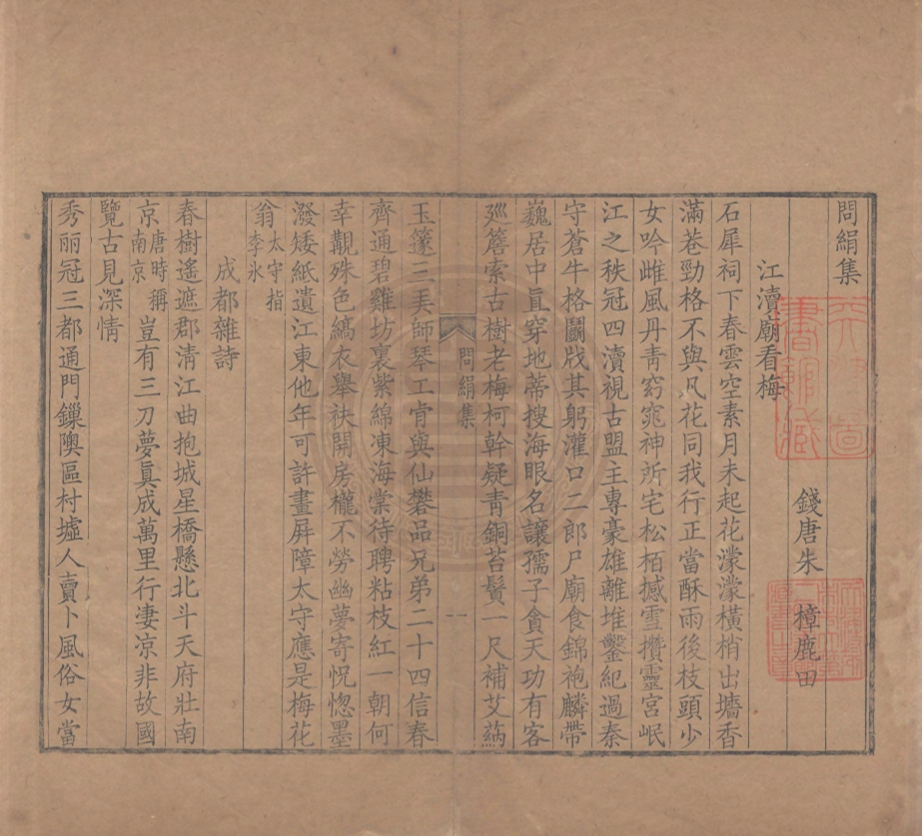 問絹集
錢唐朱 樟鹿田
江瀆廟看梅
石犀祠下春雲空素月未起花濛濛橫梢出墻香
滿巷勁格不與凡花同我行正當酥雨後枝頭少
女吟雌風丹青窈窕神所宅松栢撼雪攢靈宮岷
江之秩冠四瀆視古盟主專豪雄離堆鑿紀過秦
守蒼牛格鬭戕其躬灌口二郎尸廟食錦袍麟帶
巍居中直穿地蒂搜海眼名讓孺子貪天功有客
廵簷索古樹老梅柯幹疑青銅苔鬢一尺補艾蒳
問絹集
一
玉籧三美師琴工肯與仙礬品兄弟二十四信春
齊通碧雞坊裏紫綿凍海棠待聘粘枝紅一朝何
幸觀殊色縞衣舉袂開房櫳不勞幽夢寄怳惚墨
潑矮紙遺江東他年可許畫屛障太守應是梅花
翁太守指李氷
成都雜詩
春樹遙遮郡淸江曲抱城星橋懸北斗天府壯南
京唐時稱南京豈有三刀夢眞成萬里行淒凉非故國
覽古見深情
秀丽冠三都通門鏁隩區村墟人賣卜風俗女當